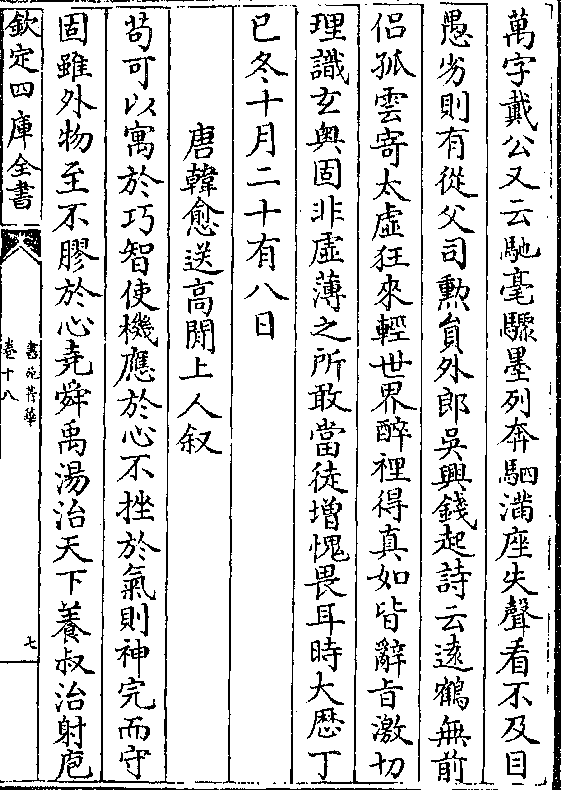 萬字戴公又云馳毫驟墨列奔駟滿座失聲看不及目
愚劣則有從父司勲貟外郎吳興錢起詩云逺鶴無前
侣孤雲寄太虛狂來輕世界醉裡得真如皆辭旨激切
理識玄奥固非虛薄之所敢當徒增愧畏耳時大厯丁
巳冬十月二十有八日
唐韓愈送高閒上人叙
茍可以寓於巧智使機應於心不挫於氣則神完而守
固雖外物至不膠於心堯舜禹湯治天下養叔治射庖
欽定四庫全書
書苑菁華
卷十八
七